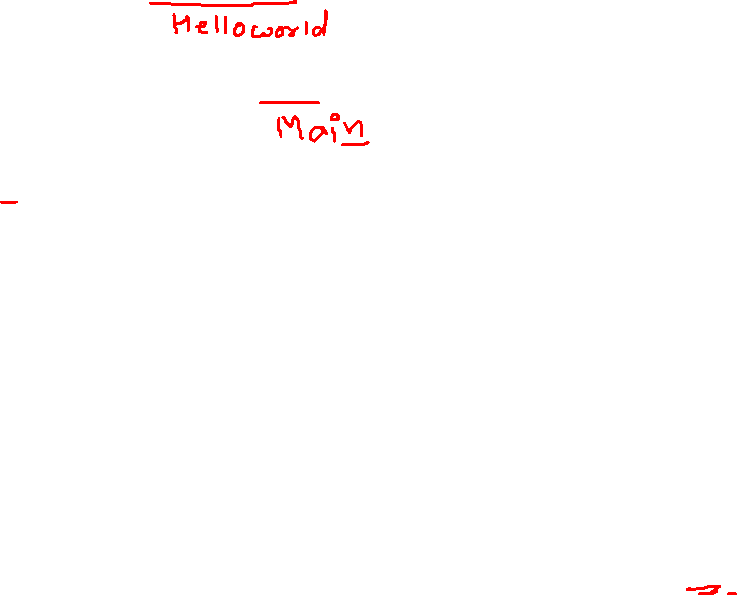 Helloworld
Main